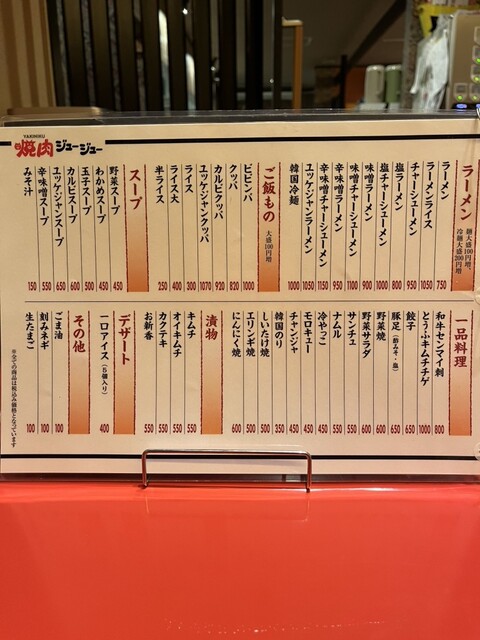 YAKINIKU
焼肉ジュージュー
ラーメン
麺大盛100円増、
冷麺大盛200円増
ラーメン 750
ラーメンライス 1050
チャーシューメン 950
塩ラーメン 800
塩チャーシューメン 1000
味噌ラーメン 900
味噌チャーシューメン 1100
辛味噌ラーメン 950
辛味噌チャーシューメン 1150
ユッケジャンラーメン 1050
韓国冷麺 1000
ご飯もの
大盛100円増
ビビンバ 1000
クッパ 820
カルビクッパ 920
ユッケジャンクッパ 1070
ライス 300
ライス大 400
半ライス 250
スープ
野菜スープ 450
わかめスープ 450
玉子スープ 500
カルビスープ 600
ユッケジャンスープ 650
辛味噌スープ 550
みそ汁 150
一品料理
和牛センマイ刺 800
とうふキムチチゲ 1000
餃子 650
豚足（酢みそ・塩） 650
野菜焼 600
野菜サラダ 600
サンチュ 550
ナムル 550
冷やっこ 450
モロキュー 450
チャンジャ 450
韓国のり 350
しいたけ焼 500
エリンギ焼 500
にんにく焼 600
漬物
キムチ 550
オイキムチ 550
カクテキ 550
お新香 550
デザート
一口アイス（5個入り） 400
その他
ごま油 100
刻みネギ 100
生たまご 100
※全ての商品は税込み価格となっています